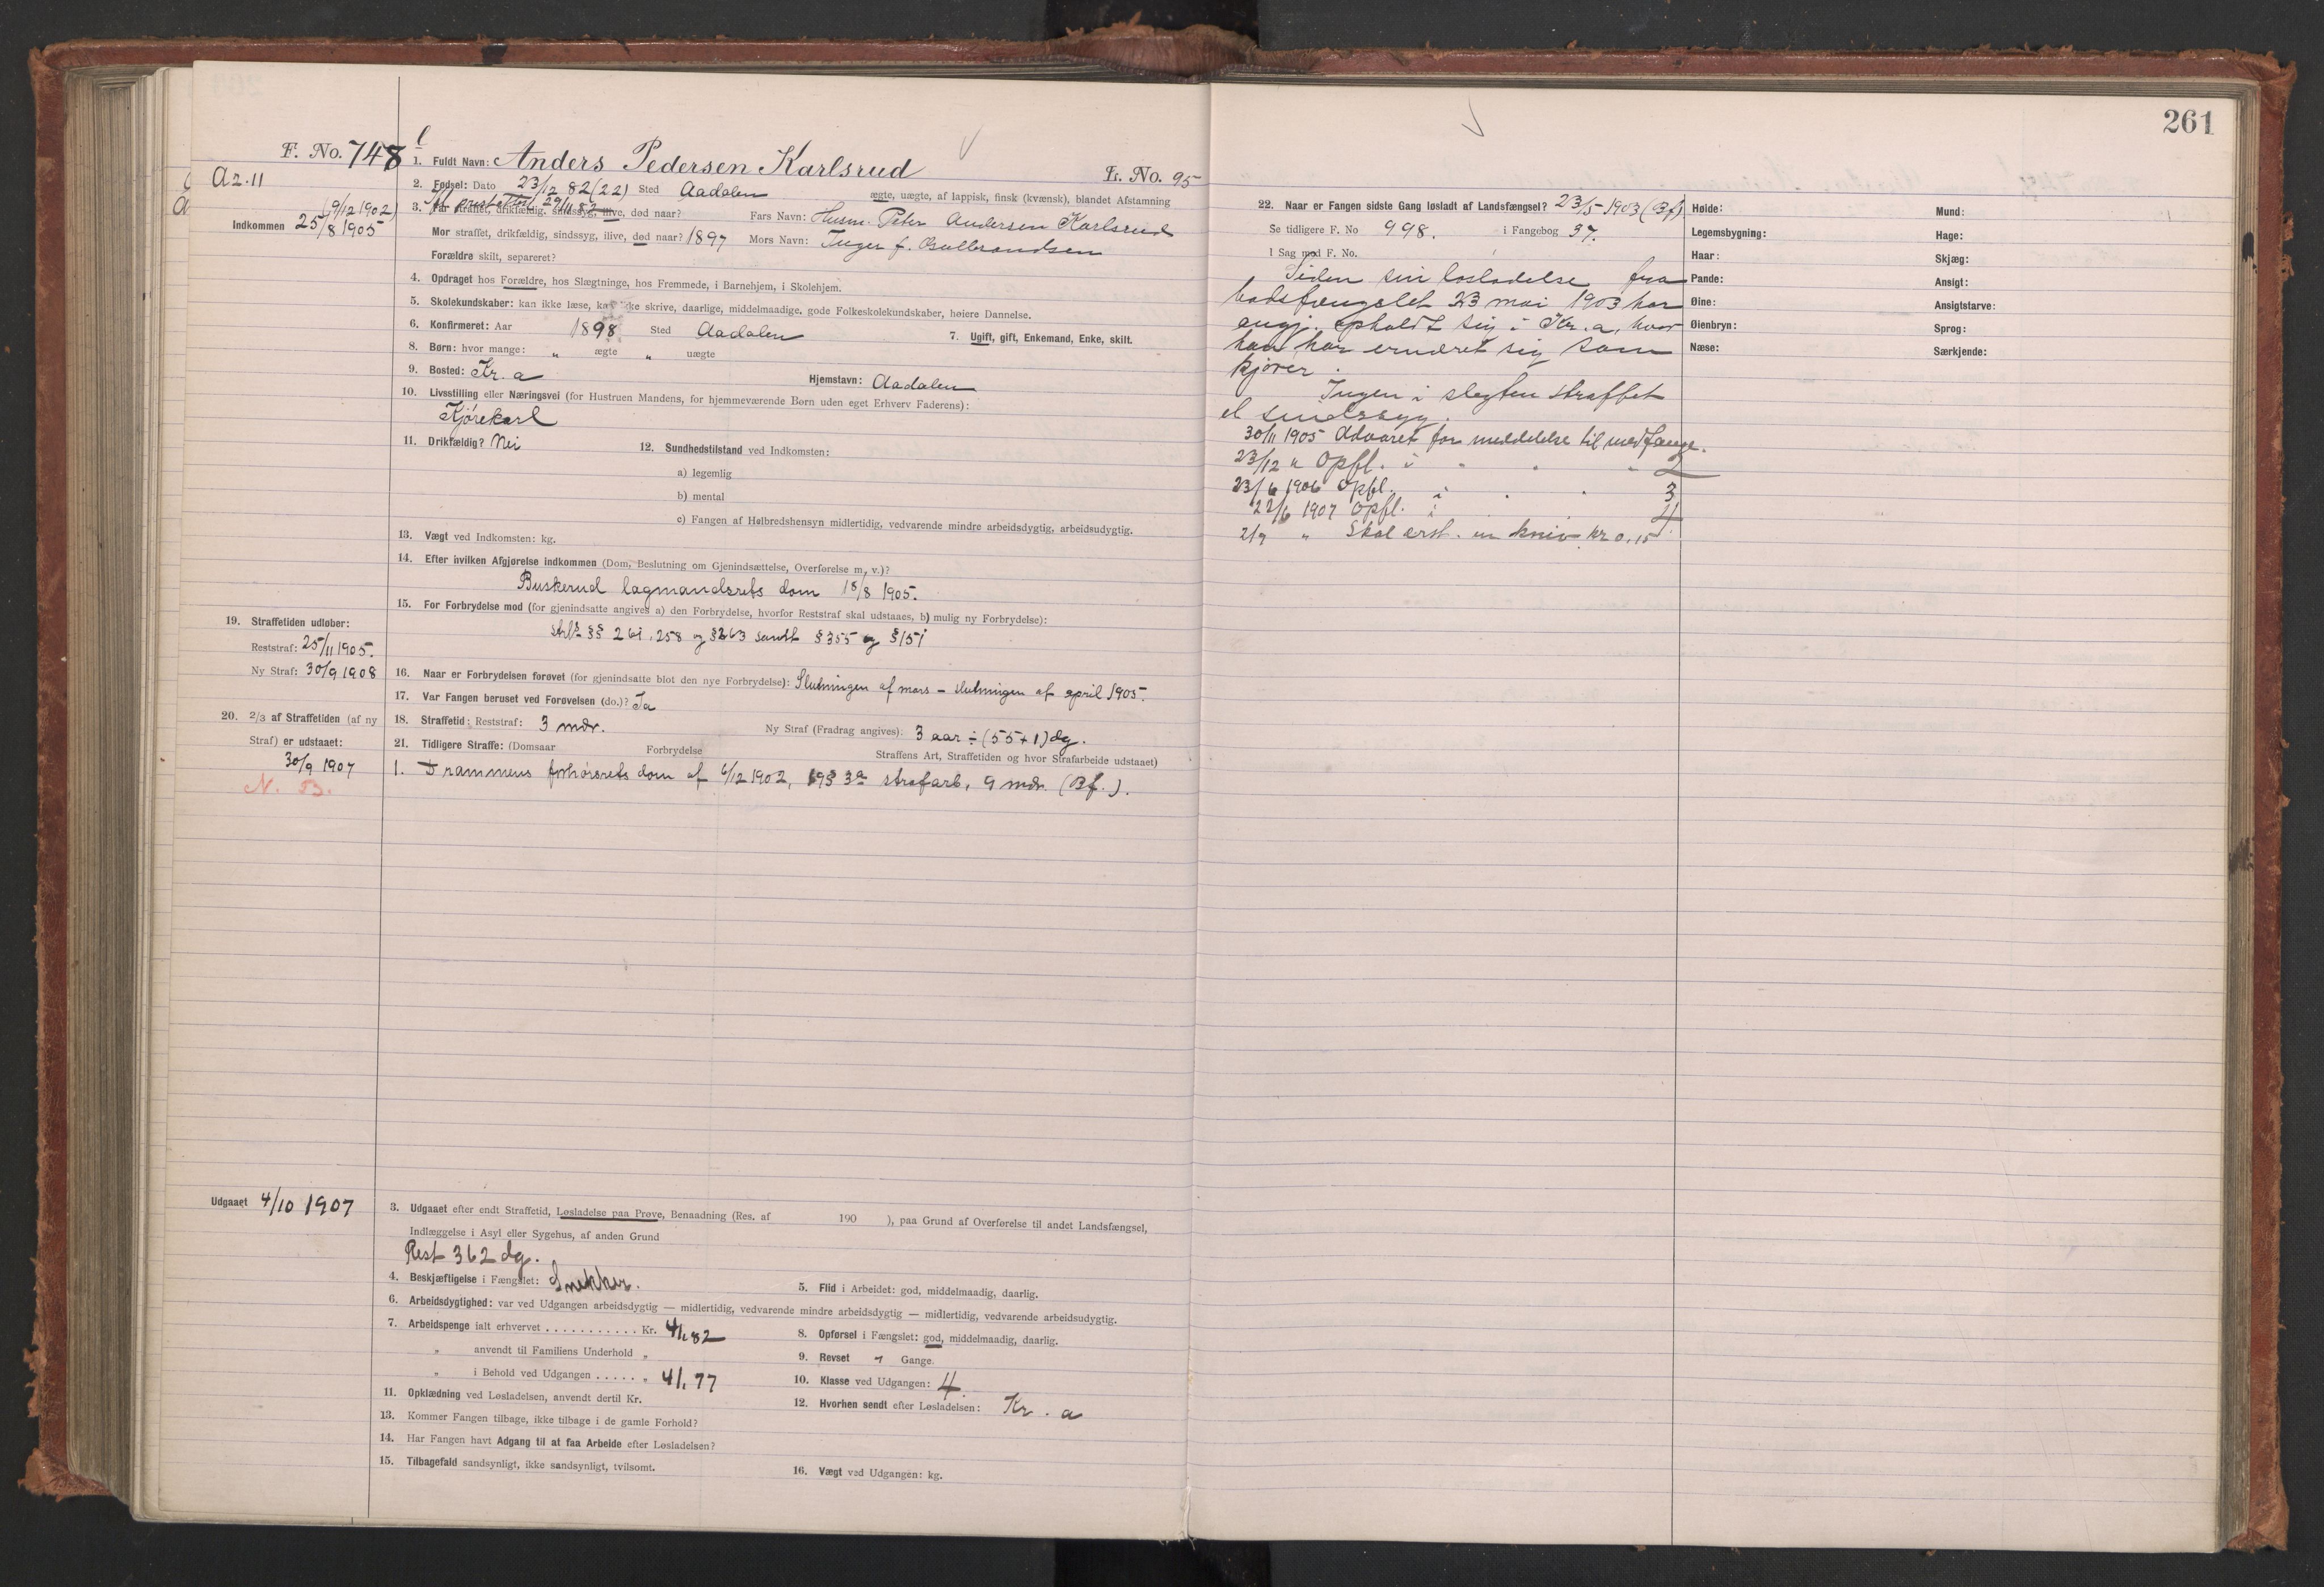 261
F. No. 748
Az. 11
(9/12 1902)
Indkommen 25/8 1905
1. Fuldt Navn: Anders Pedersen Karlsrud
Fr. No. 95
2. Fødsel: Dato 23/12 82 (22) Sted Aadalen ægte, uægte, af lappisk, finsk (kvænsk), blandet Afstamning
29/11 82
3. Far straffet, drikfældig, sindssyg, ilive, død naar? Fars Navn: Husm. Peter Andersen Karlsrud
Mor straffet, drikfældig, sindssyg, ilive, død naar? 1897 Mors Navn: Inger f. Gulbrandsen
Forældre skilt, separeret?
4. Opdraget hos Forældre, hos Slægtninge, hos Fremmede, i Barnehjem, i Skolehjem.
5. Skolekundskaber: kan ikke læse, kan ikke skrive, daarlige, middelmaadige, gode Folkeskolekundskaber, høiere Dannelse.
6. Konfirmeret: Aar 1898 Sted Aadalen 7. Ugift, gift, Enkemand, Enke, skilt.
8. Børn: hvor mange: „ ægte „ uægte
9. Bosted: Kr. a Hjemstavn: Aadalen
10. Livsstilling eller Næringsvei (for Hustruen Mandens, for hjemmeværende Børn uden eget Erhverv Faderens):
Kjørekarl
11. Drikfældig? Nei 12. Sundhedstilstand ved Indkomsten:
a) legemlig
b) mental
c) Fangen af Helbredshensyn midlertidig, vedvarende mindre arbeidsdygtig, arbeidsudygtig.
13. Vægt ved Indkomsten: kg.
14. Efter hvilken Afgjørelse indkommen (Dom, Beslutning om Gjenindsættelse, Overførelse m. v.)?
Buskerud lagmandsrets dom 18/8 1905.
15. For Forbrydelse mod (for gjenindsatte angives a) den Forbrydelse, hvorfor Reststraf skal udstaaes, b) mulig ny Forbrydelse):
Strl. §§ 261, 258 og § 263 samt § 355 og § 151
19. Straffetiden udløber:
Reststraf: 25/11 1905.
Ny Straf: 30/9 1908
16. Naar er Forbrydelsen forøvet (for gjenindsatte blot den nye Forbrydelse): Slutningen af mars – slutningen af april 1905.
17. Var Fangen beruset ved Forøvelsen (do.)? Ja
18. Straffetid: Reststraf: 3 mdr. Ny Straf (Fradrag angives): 3 aar ÷ (55 + 1) dg.
20. 2/3 af Straffetiden (af ny
Straf) er udstaaet:
30/9 1907
N. B.
21. Tidligere Straffe: (Domsaar Forbrydelse Straffens Art, Straffetiden og hvor Strafarbeide udstaaet)
1. Drammens forhørsrets dom af 6/12 1902, strafarb. 9 mdr. (Bf.).
Udgaaet 4/10 1907
3. Udgaaet efter endt Straffetid, Løsladelse paa Prøve, Benaadning (Res. af 190 ), paa Grund af Overførelse til andet Landsfængsel,
Indlæggelse i Asyl eller Sygehus, af anden Grund
Rest 362 dg.
4. Beskjæftigelse i Fængslet: Snekker. 5. Flid i Arbeidet: god, middelmaadig, daarlig.
6. Arbeidsdygtighed: var ved Udgangen arbeidsdygtig — midlertidig, vedvarende mindre arbeidsdygtig — midlertidig, vedvarende arbeidsudygtig.
7. Arbeidspenge ialt erhvervet . . . . . . . . . . . Kr. 41,82 8. Opførsel i Fængslet: god, middelmaadig, daarlig.
„ anvendt til Familiens Underhold „ 9. Revset Gange.
„ i Behold ved Udgangen . . . . . „ 41,77 10. Klasse ved Udgangen: 4.
11. Opklædning ved Løsladelsen, anvendt dertil Kr. 12. Hvorhen sendt efter Løsladelsen: Kr. a
13. Kommer Fangen tilbage, ikke tilbage i de gamle Forhold?
14. Har Fangen havt Adgang til at faa Arbeide efter Løsladelsen?
15. Tilbagefald sandsynligt, ikke sandsynligt, tvilsomt.
16. Vægt ved Udgangen: kg.
22. Naar er Fangen sidste Gang løsladt af Landsfængsel? 23/5 1903 (Bf)
Se tidligere F. No 998. i Fangebog 37.
I Sag med F. No.
Siden sin løsladelse fra
bodsfængslet 23 mai 1903 har
angj. opholdt sig i Kr. a, hvor
han har ernæret sig som
kjører.
Ingen i slegten straffet
el sindssyg.
30/11 1905 Advaret for meddelelse til medfange.
23/12 „ Opfl. i „ „ „ 2
23/6 1906 Opfl. i „ „ 3
22/6 1907 Opfl. i „ „ 4
2/9 „ Skal erst. en kniv kr 0,15
Høide:
Legemsbygning:
Haar:
Pande:
Øine:
Øienbryn:
Næse:
Mund:
Hage:
Skjæg:
Ansigt:
Ansigtstarve:
Sprog:
Særkjende: